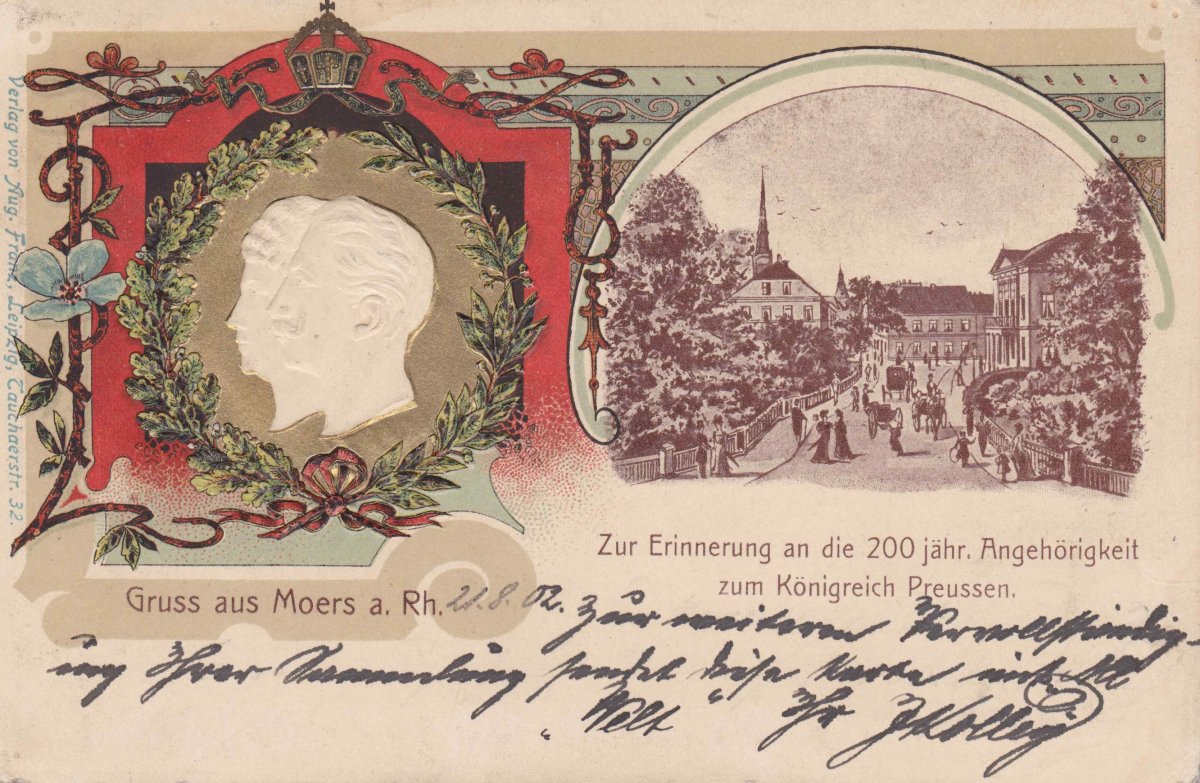 Verlag von Aug. Frank, Leipzig, Tauchaerstr. 32.
Zur Erinnerung an die 200 jähr. Angehörigkeit
zum Königreich Preussen.
Gruss aus Moers a. Rh. 21.8.02.
Zur weiteren Vervollständig-
ung Ihrer Sammlung sendet diese Karte
"Welt" Ihr